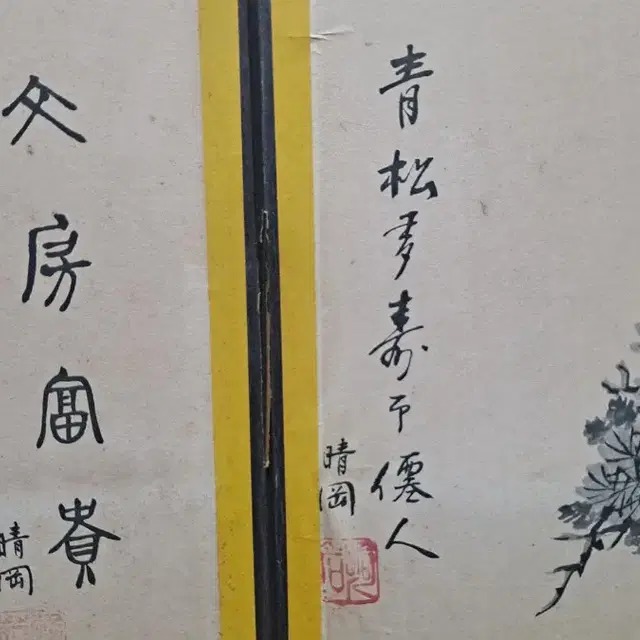 青松多壽僊人
晴岡
文房富貴
晴岡